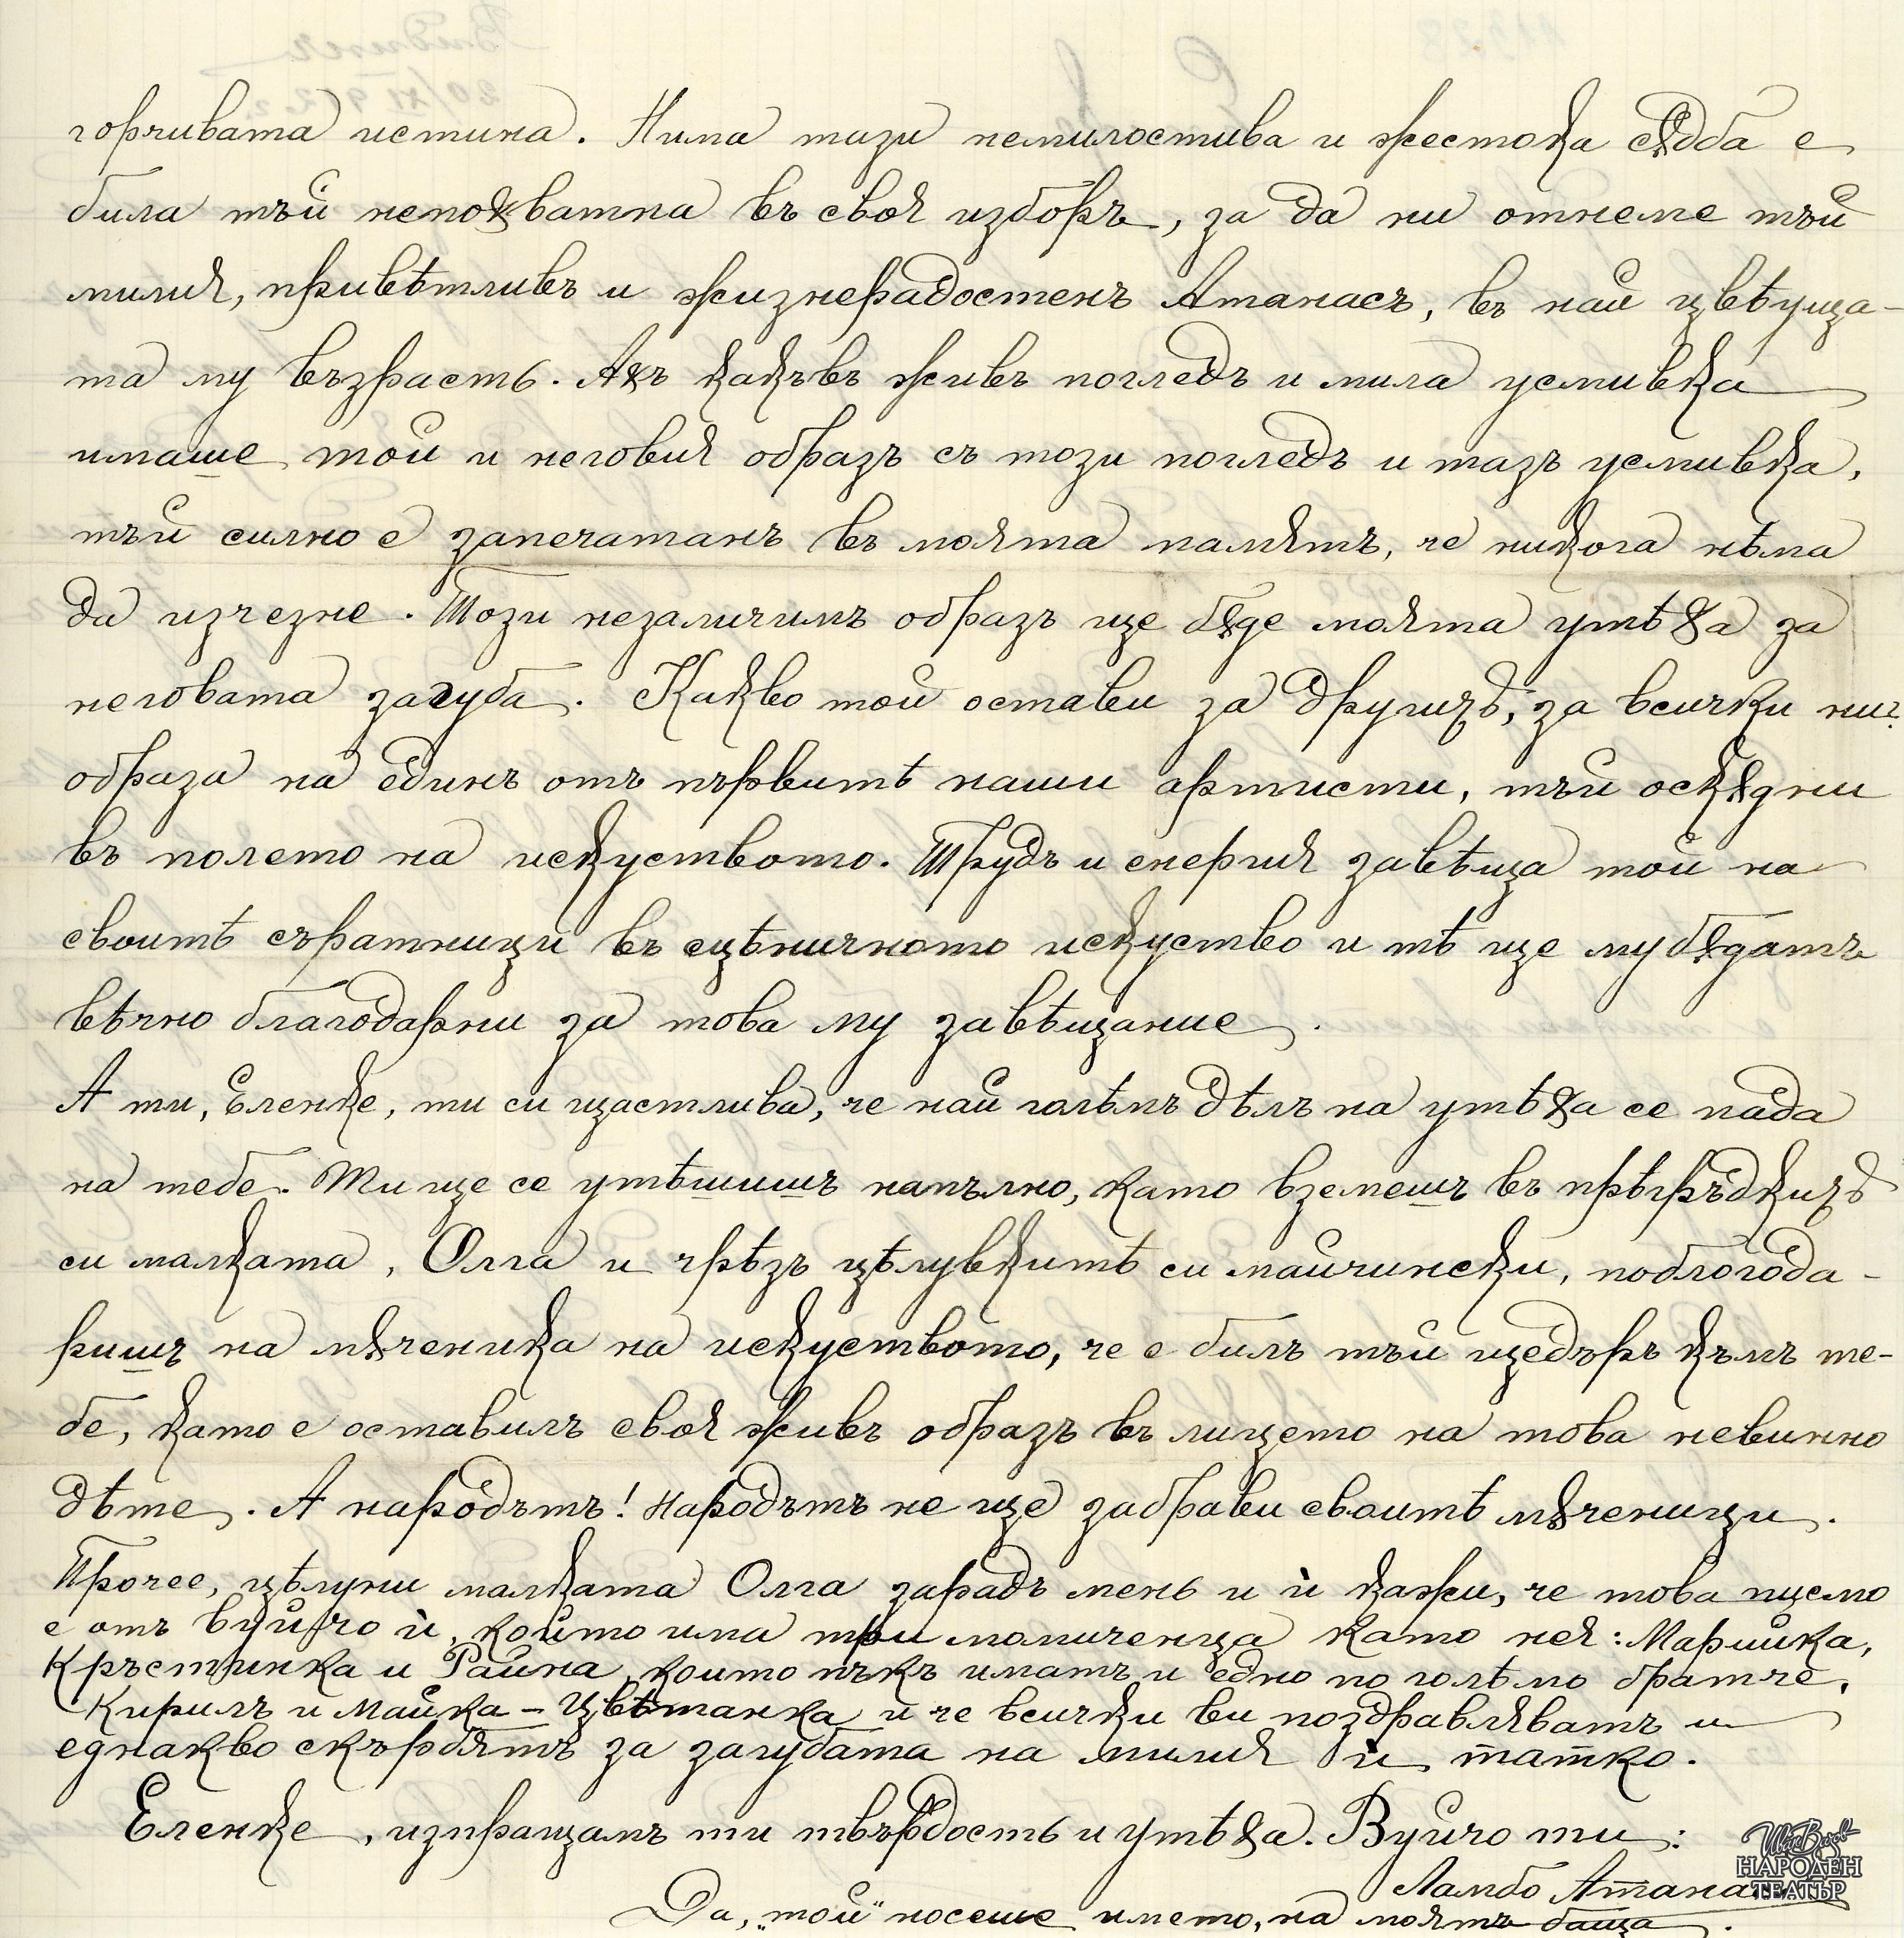 горчивата истина. Нима тази немилостива и жестока сѫдба е
била тъй непохватна въ своя изборъ, за да ни отнеме тъй
милия, привѣтливъ и жизнерадостенъ Атанасъ, въ най цвѣтуща-
та му възрасть. Ахъ какъвъ живъ погледъ и мила усмивка
имаше той и неговия образъ съ този погледъ и тазъ усмивка,
тъй силно е запечатанъ въ моята паметъ, че никога нѣма
да изчезне. Този незаличимъ образъ ще бѫде моята утѣха за
неговата загуба. Какво той остави за другизѣ, за всички ни?
образа на единъ отъ първитѣ наши артисти, тъй оскѫдни
въ полето на искуството. Трудъ и енергия завѣща той на
своитѣ съратници въ сцѣничното искуство и тѣ ще му бѫдатъ
вѣчно благодарни за това му завѣщание.
А ти, Еленке, ти си щастлива, че най голѣмъ дѣлъ на утѣха се пада
на тебе. Ти ще се утѣшишъ напълно, като вземешъ въ прѣгрѣдкизѣ
си малката, Олга и чрѣзъ цѣлувкитѣ си майчински, поблогода-
ришъ на мѫченика на искуството, че е билъ тъй щедъръ къмъ те-
бе, като е оставилъ своя живъ образъ въ лицето на това невинно
дѣте. А народътъ! Народътъ не ще забрави своитѣ мѫченици.
Прочее, цѣлуни малката Олга зарадъ мень и ѝ кажи, че това писмо
е отъ вуйчо ѝ, който има три момиченца като нея: Марийка,
Кръстинка и Райна, които пъкъ иматъ и едно по голѣмо братче,
Кирилъ и майка - Цвѣтанка и че всички ви поздравляватъ и
еднакво скърбятъ за загубата на милия ѝ татко.
Еленке, изпращамъ ти твърдость и утѣха. Вуйчо ти:
Ламбо
Да, "той" носеше името, на моятъ баща.
Иван Вазов
НАРОДЕН
ТЕАТЪР